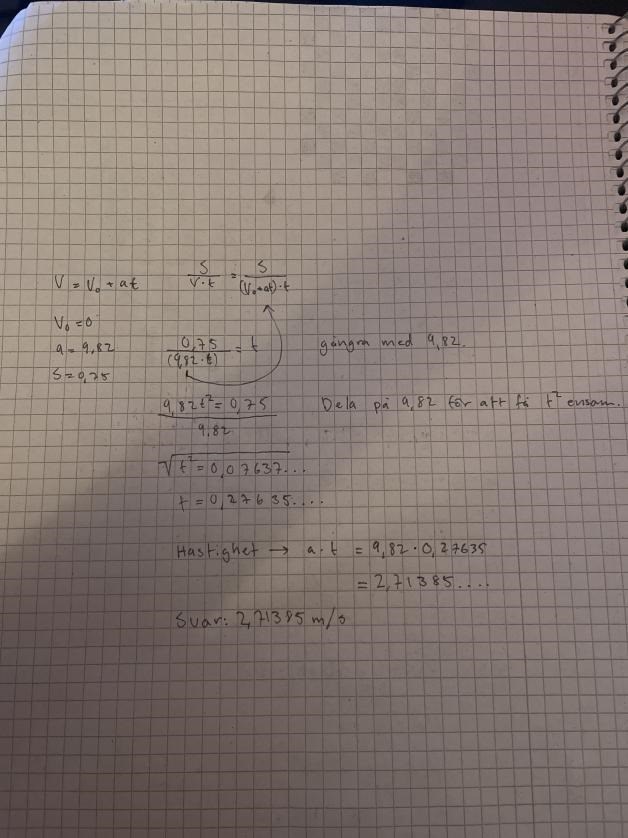 V = V₀ + at
S/(V·t) = S/((V₀+at)·t)
V₀ = 0
a = 9,82
0,75/(9,82·t) = t gångra med 9,82.
S = 0,75
9,82t² = 0,75 Dela på 9,82 för att få t² ensam.
9,82
√t² = 0,07637...
t = 0,27635....
Hastighet → a·t = 9,82·0,27635
= 2,71385....
Svar: 2,71385 m/s